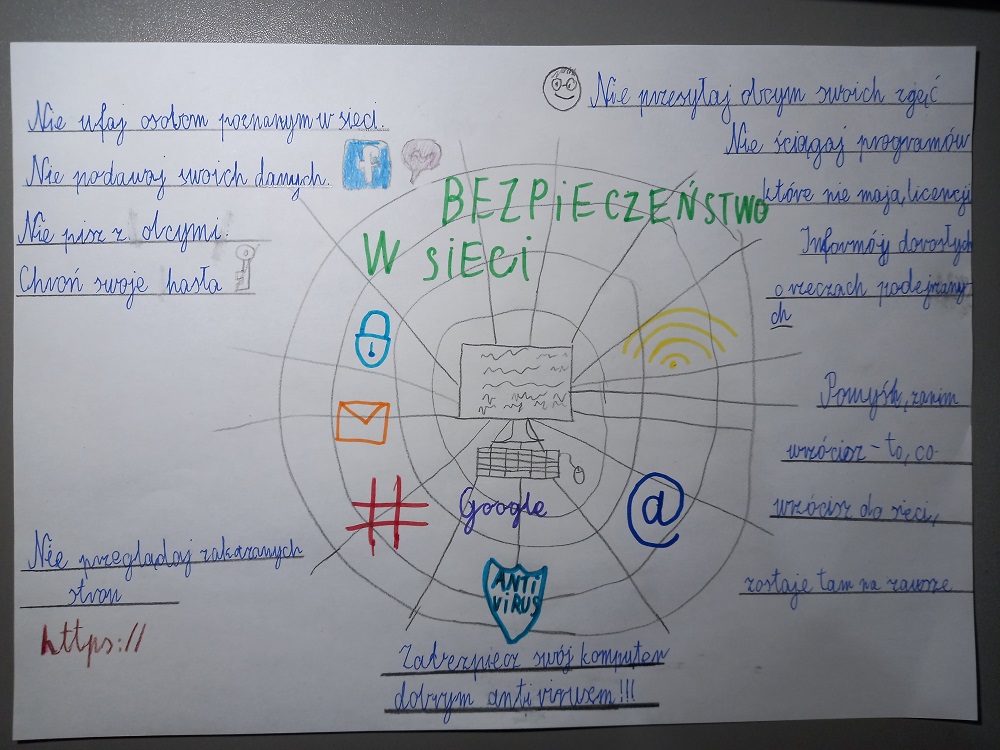 Nie ufaj osobom poznanym w sieci.
Nie podawaj swoich danych.
f
Nie pisz z obcymi.
Chroń swoje hasła
Nie przesyłaj obcym swoich zdjęć
Nie ściągaj programów
które nie mają licencji
Informój dorosłych
o rzeczach podejrzany
ch
BEZPiECZEŃSTWO
W SiECi
Pomyśl, zanim
wrzócisz - to, co
wrzócisz do sieci,
zostaje tam na zawsze
#
Google
@
ANTi
ViRUS
Nie przeglądaj zakazanych
stron
https://
Zabezpiecz swój komputer
dobrym anti virusem!!!